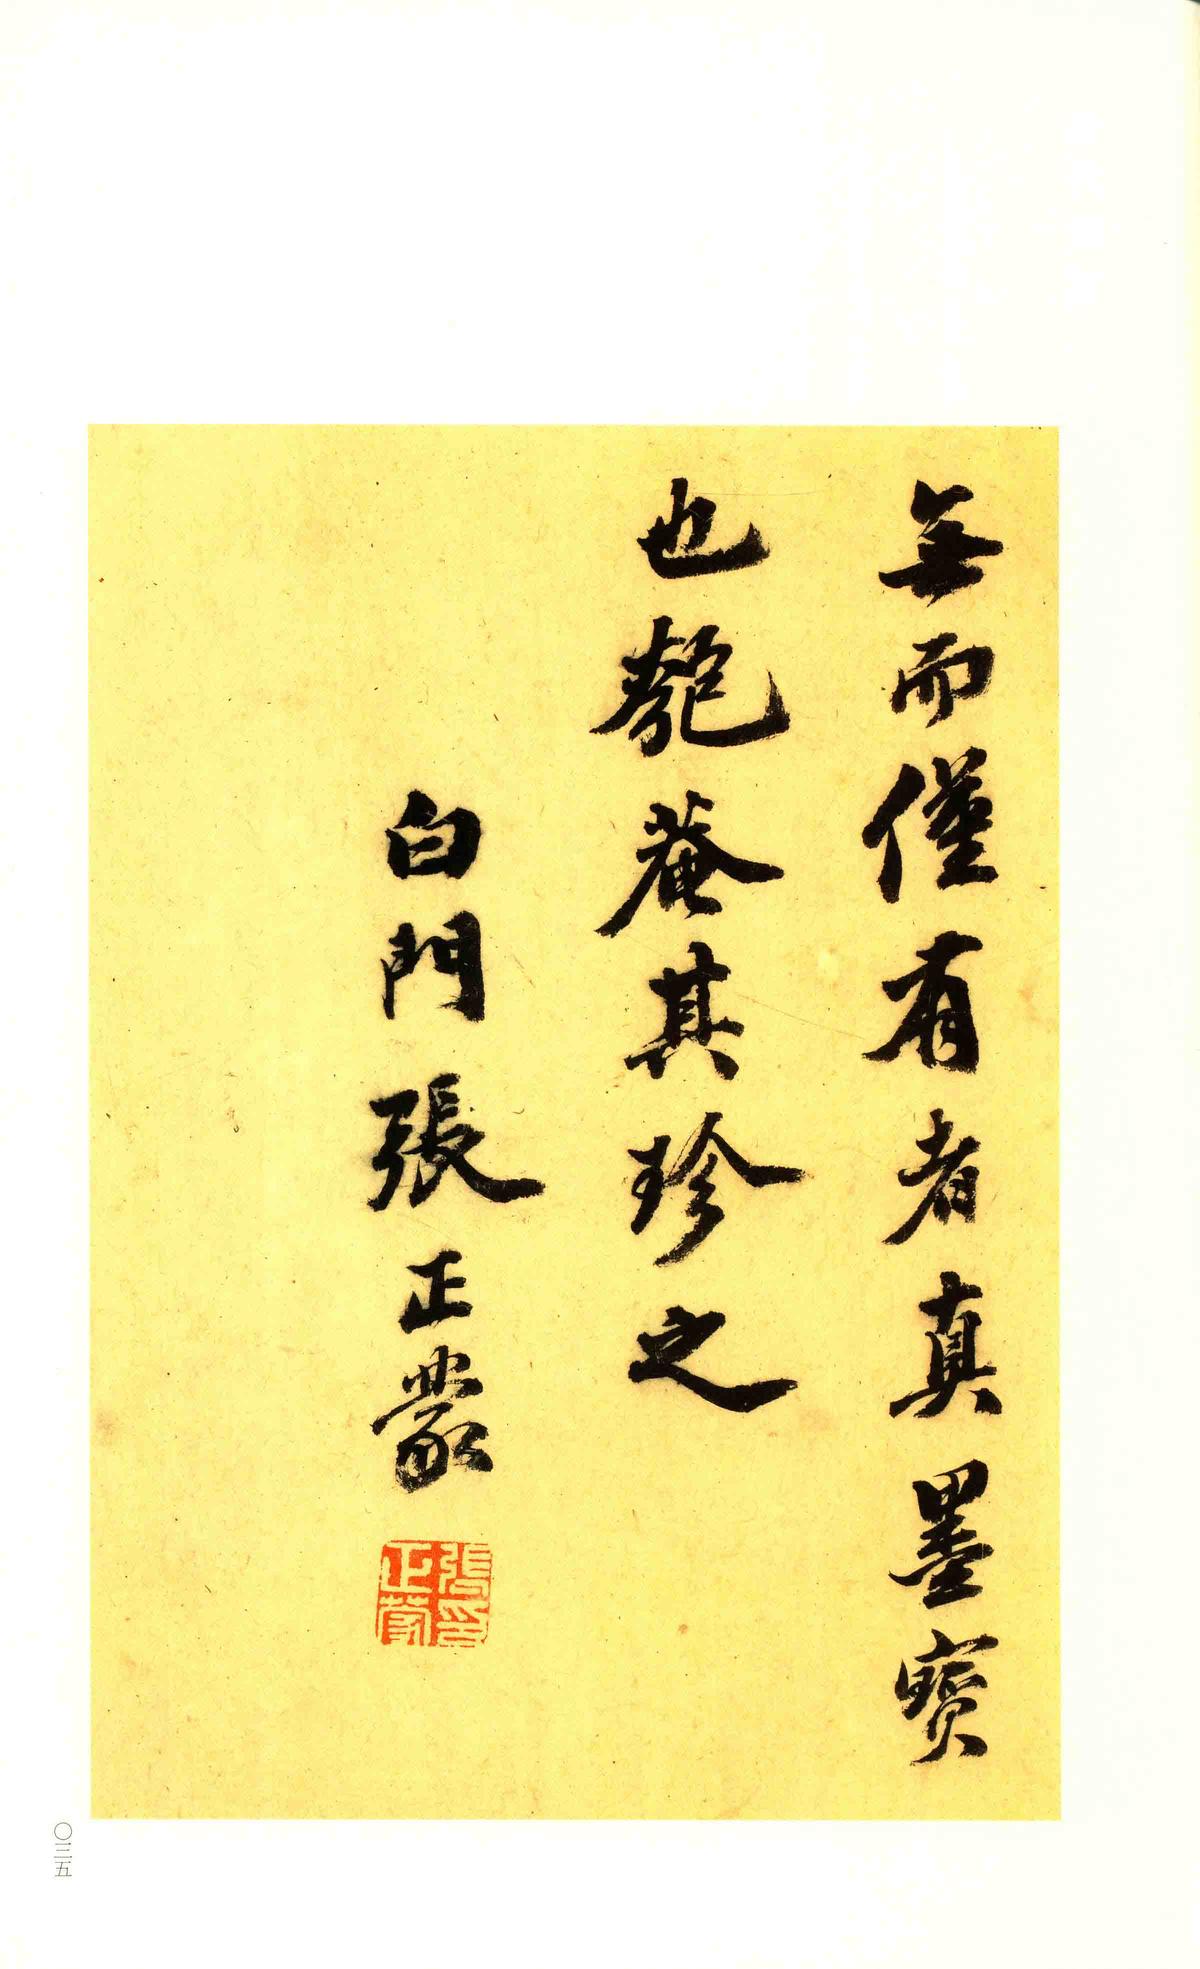 無而僅有者真墨寶
也匏菴其珍之
白門張正蒙
張正蒙印
〇三五